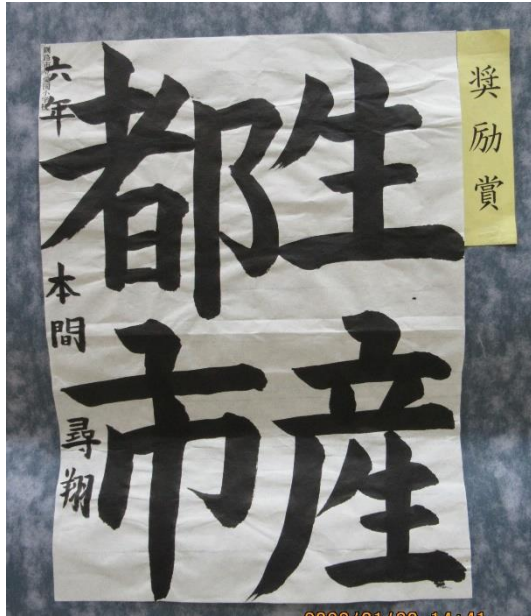 奨励賞
生産
都市
六年 本間 尋翔